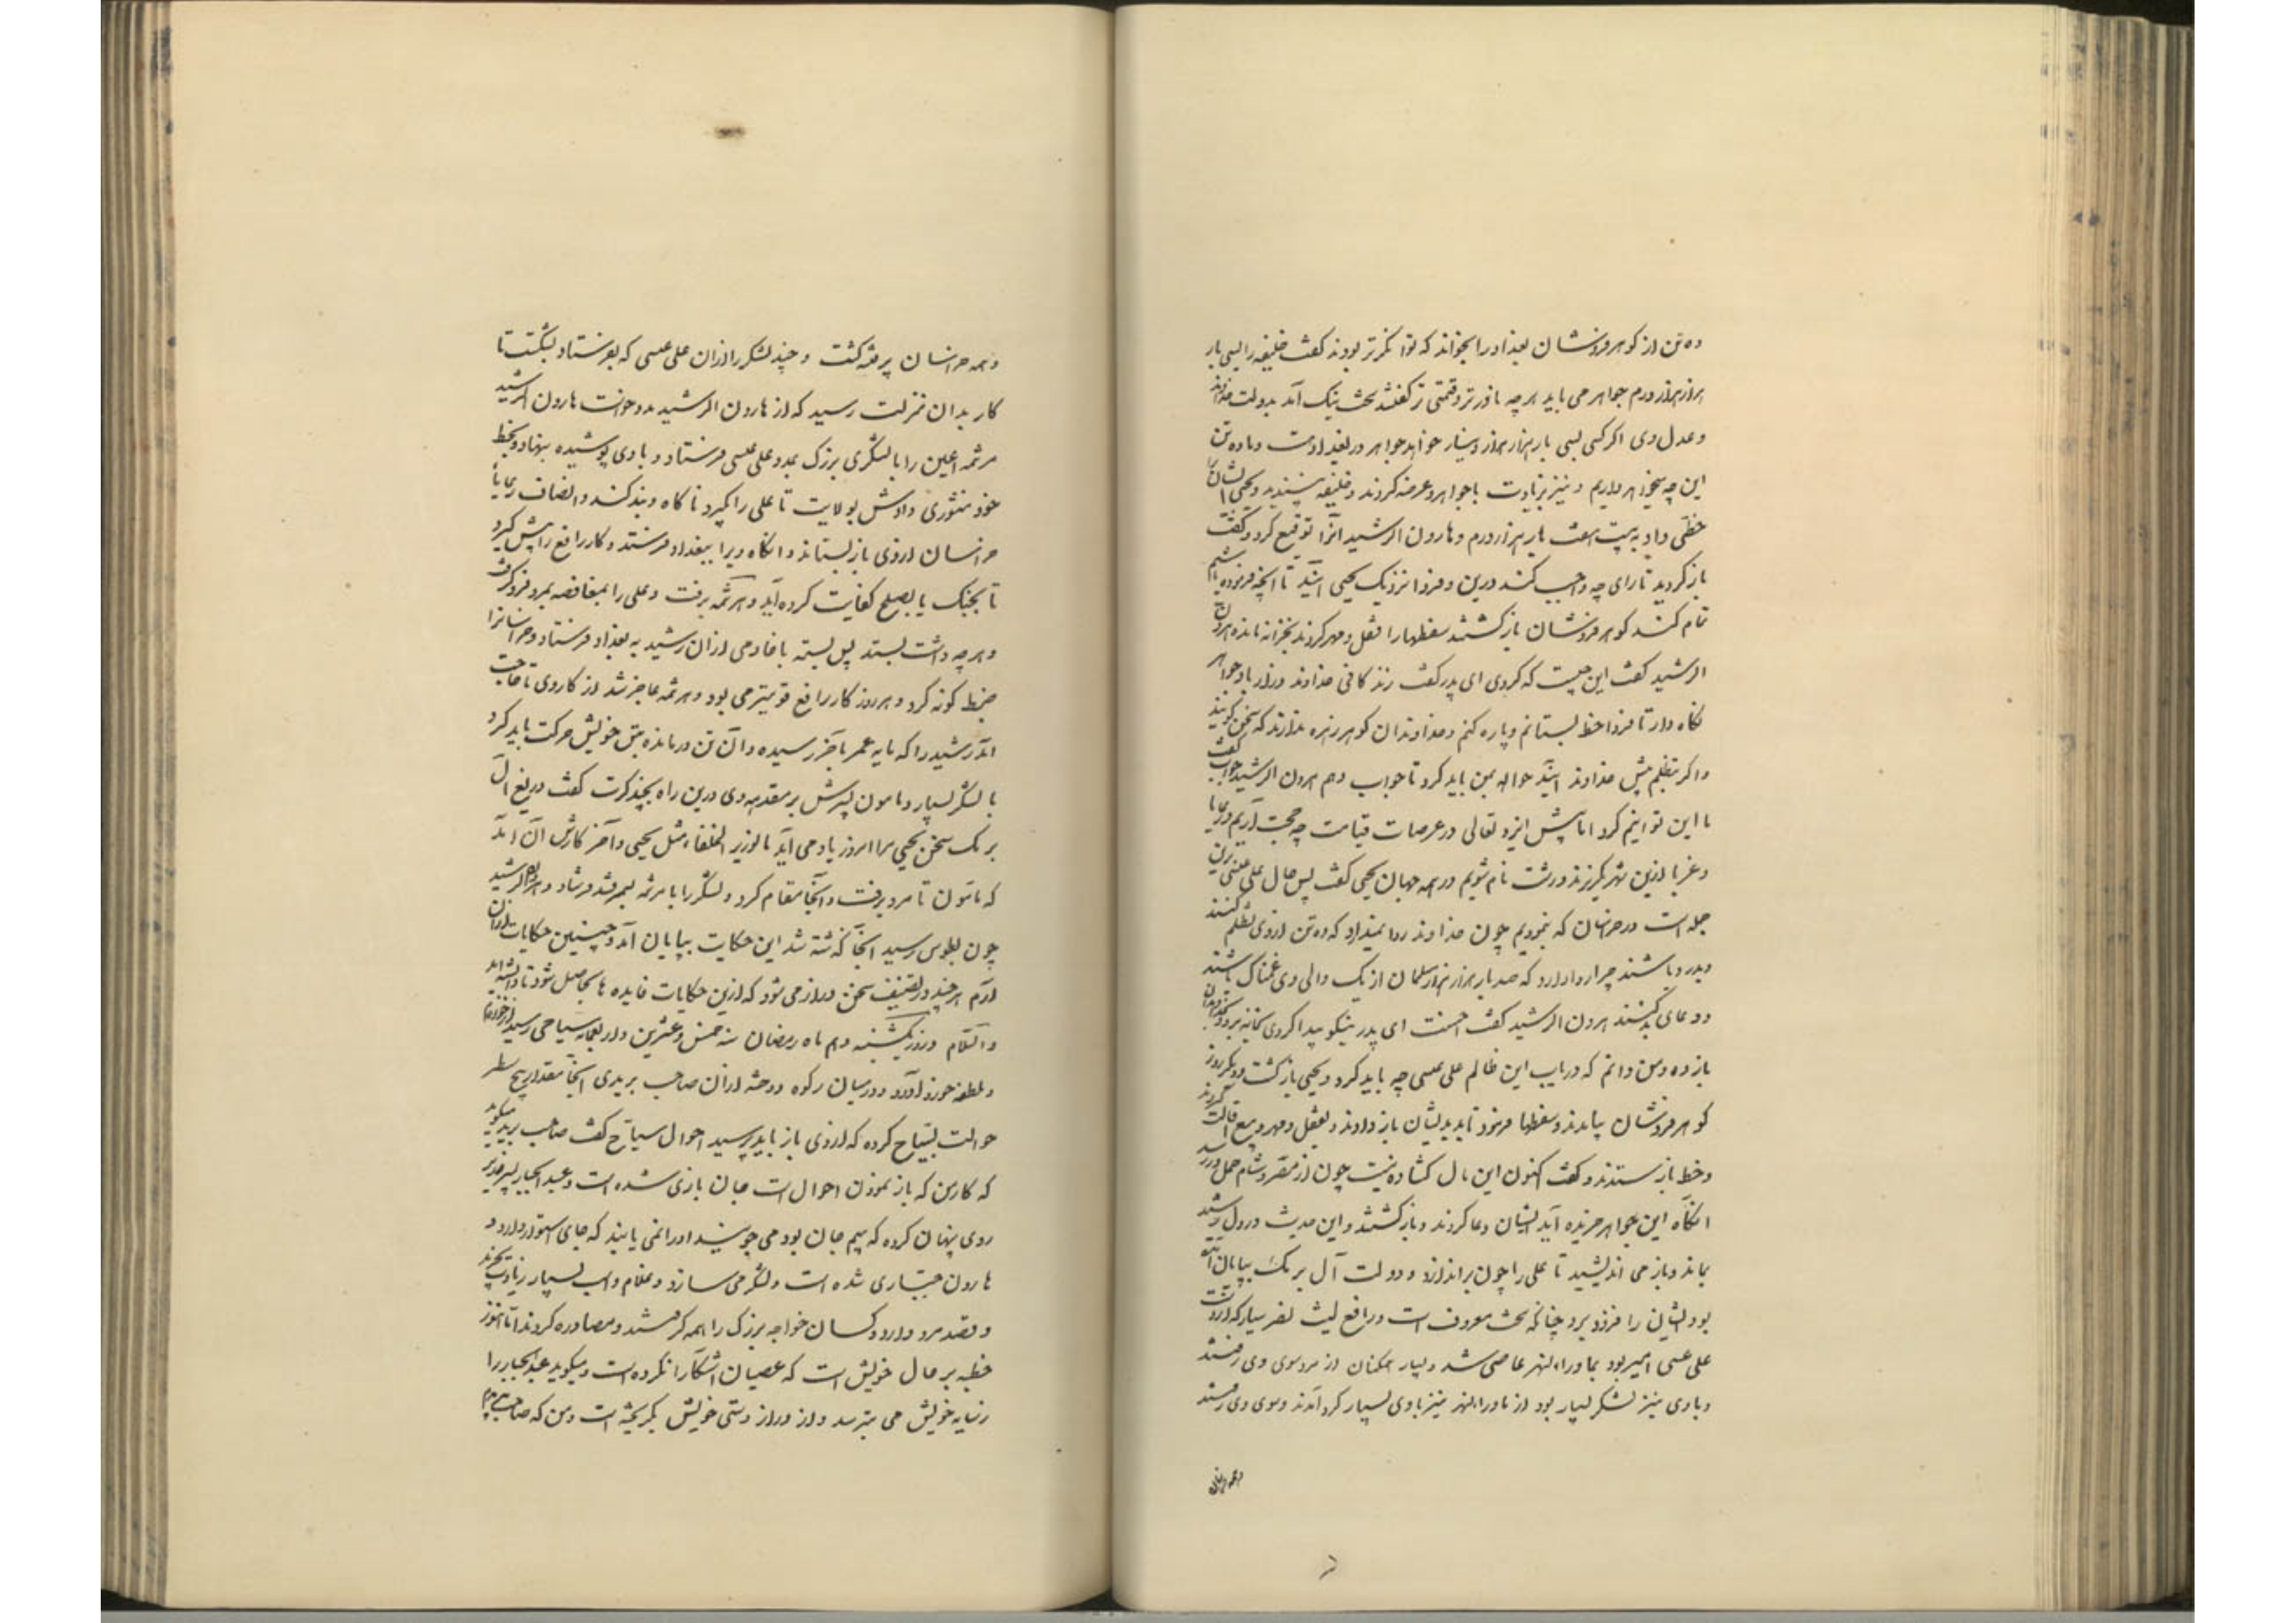 ده تن از کوهر فروشان بغداد را بخواند که توانکرتر بودند کفت خلیفه را بسی بار
هزار هزار درم جواهر می باید هر چه نادرتر و قیمتی تر کفتند سخت نیک آمد بدولت خداوند
و عدل وی اکر کسی بسی بار هزار هزار دینار خواهد جواهر در بغداد هست و ما ده تن
این چه میخواهد داریم و نیز بزیادت با جواهر و عرضه کردند و خلیفه بپسندید و یحیی ایشانرا
خطی داد به بیست هفت بار هزار درم و هارون الرشید آنرا توقیع کرد و کفت
باز کردید تا رای چه واجب کند درین و فردا نزدیک یحیی آیید تا آنچه فرموده باشیم
تمام کند کوهر فروشان باز کشتند سفطها را قفل و مهر کردند بخزانه مانده هرون
الرشید کفت این چیست که کردی ای پدر کفت زندکانی خداوند دراز باد جواهر
نکاه دار تا فردا خط بستانم و پاره کنم و خداوندان کوهر زهره ندارند که سخن کویند
و اکر بتظلم پیش خداوند آیند حواله بمن باید کرد تا جواب دهم هرون الرشید جواب کفت
ما این توانیم کرد اما پیش ایزد تعالی در عرصات قیامت چه حجت آریم و رعایا
و غربا ازین شهر بکریزند و زشت نام شویم در همه جهان یحیی کفت پس حال علی عیسی برین
جمله است در خراسان که نمودیم چون خداوند روا نمیدارد که ده تن از وی تظلم کنند
و بدرد باشند چرا روا دارد که صد بار هزار هزار مسلمان از یک والی وی غمناک باشند
و دعای بد کنند هرون الرشید کفت احسنت ای پدر نیکو پیدا کردی بخانه برو و بخداوندان
باز ده و من دانم که در باب این ظالم علی عیسی چه باید کرد و یحیی بازکشت و دیکر روز
کوهر فروشان بیامدند و سفطها فرمود تا بدیشان باز دادند و بقفل و مهر و بیع اقالت کردند
و خط باز ستدند و کفت اکنون این مال کشاده نیست چون از مصر و شام حمل در رسد
آنکاه این جواهر خریده آید ایشان دعا کردند و بازکشتند و این حدیث در دل رشید
بماند و باز می اندیشید تا علی را چون براندازد و دولت آل برمک بپایان آمده
بود ایشان را فرو برد چنانکه سخت معروف است و رافع لیث نصر سیار که از دست
علی عیسی امیر بود بماوراء النهر عاصی شد و بسیار همکنان از مرو سوی وی رفتند
و با وی نیز لشکر بسیار بود از ماوراء النهر نیز با وی بسیار کرد آمدند و سوی وی رفتند
و همه خراسان
و همه خراسان پر فتنه کشت و چند لشکر را از آن علی عیسی که بفرستاد بشکست تا
کار بدان منزلت رسید که از هارون الرشید مدد خواست هارون الرشید
هرثمه اعین را با لشکری بزرک بمدد علی عیسی فرستاد و با وی پوشیده بنهاد و بخط
خود منشوری دادش بولایت تا علی را بکیرد ناکاه و بند کند و انصاف رعایا
خراسان از وی باز بستاند و آنکاه ویرا ببغداد فرستد و کار رافع را پیش کیرد
تا بجنک یا بصلح کفایت کرده آید و هرثمه برفت و علی را بمغافصه بمرو فرو کرفت
و هر چه داشت بستد پس بسته با خادمی از آن رشید به بغداد فرستاد و خراسانرا
ضبط کونه کرد و هر روز کار رافع قویتر می بود و هرثمه عاجز شد از کار وی تا حاجت
آمد رشید را که مایه عمر بآخر رسیده و آن تن درمانده بتن خویش حرکت باید کرد
با لشکر بسیار و مامون پسرش بر مقدمه وی درین راه بچند کرت کفت دریغ آل
برمک سخن یحیی مرا امروز یاد می آید ما لوزیر الخلفاء مثل یحیی و آخر کارش آن آمد
که مامون تا مرو برفت و آنجا مقام کرد و لشکر را با هرثمه بسمرقند فرستاد و هرون الرشید
چون بطوس رسید آنجا کذشته شد این حکایت بپایان آمد و چنین حکایات از آن
آرم هر چند در تصنیف سخن دراز می شود که ازین حکایات فایده ها بحاصل شود تا دانسته آید
و السلام و روز یکشنبه دهم ماه رمضان سنه خمس و عشرین و اربعمایه سیاحی رسید از خوارزم
و ملطفه خورد آورد و در میان رکوه دوخته از آن صاحب بریدی آنجا مقدار پنج سطر
حوالت بسیاح کرده که از وی باز باید پرسید احوال سیاح کفت صاحب برید میکوید
که کار من که باز نمودن احوال است جان بازی شده است و عبد الجبار پسر وزیر
روی پنهان کرده که بیم جان بود می جویند او را نمی یابند که جای استوار دارد و
هارون جباری شده است و لشکر می سازد و غلام و اسب بسیار زیادت بخرید
و قصد مرو دارد و کسان خواجه بزرک را همه کرفتند و مصادره کردند اما هنوز
خطبه بر حال خویش است که عصیان آشکارا نکرده است و میکوید عبد الجبار را
ز سایه خویش می بترسد و از دراز دستی خویش بکریخته است و من که صاحب بریدم